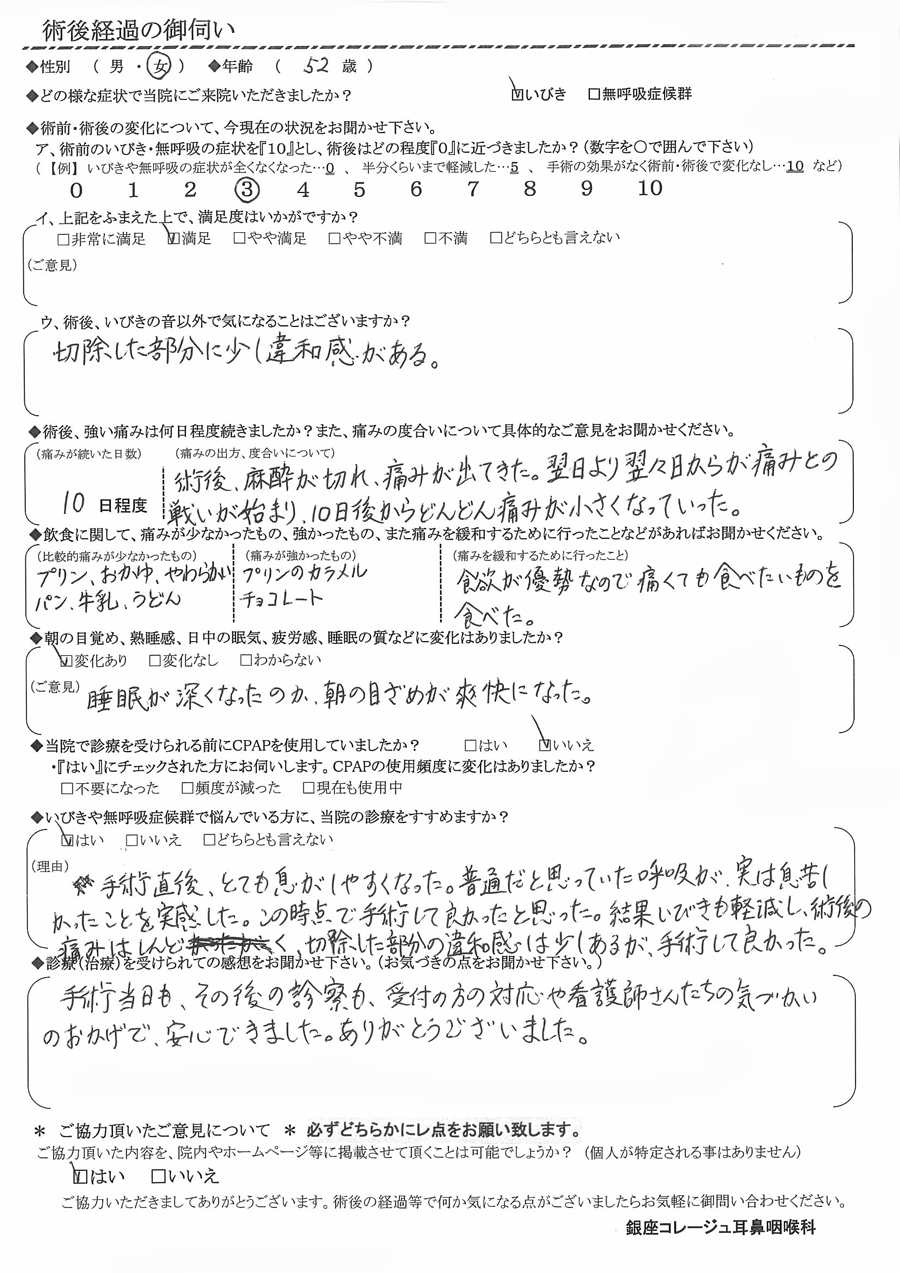 術後経過の御伺い
◆性別 （ 男 ・ 女 ） ◆年齢 （ 52 歳 ）
◆どの様な症状で当院にご来院いただきましたか？ ☑いびき □無呼吸症候群
◆術前・術後の変化について、今現在の状況をお聞かせ下さい。
ア、術前のいびき・無呼吸の症状を『10』とし、術後はどの程度『0』に近づきましたか？（数字を○で囲んで下さい）
（【例】 いびきや無呼吸の症状が全くなくなった…0 、 半分くらいまで軽減した…5 、 手術の効果がなく術前・術後で変化なし…10 など）
0 1 2 ③ 4 5 6 7 8 9 10
イ、上記をふまえた上で、満足度はいかがですか？
□非常に満足 ☑満足 □やや満足 □やや不満 □不満 □どちらとも言えない
（ご意見）
ウ、術後、いびきの音以外で気になることはございますか？
切除した部分に少し違和感がある。
◆術後、強い痛みは何日程度続きましたか？また、痛みの度合いについて具体的なご意見をお聞かせください。
（痛みが続いた日数） （痛みの出方、度合いについて）
術後、麻酔が切れ、痛みが出てきた。翌日より翌々日からが痛みとの
10 日程度 戦いが始まり、10日後からどんどん痛みが小さくなっていった。
◆飲食に関して、痛みが少なかったもの、強かったもの、また痛みを緩和するために行ったことなどがあればお聞かせください。
（比較的痛みが少なかったもの） （痛みが強かったもの） （痛みを緩和するために行ったこと）
プリン、おかゆ、やわらかい プリンのカラメル 食欲が優勢なので痛くても食べたいものを
パン、牛乳、うどん チョコレート 食べた。
◆朝の目覚め、熟睡感、日中の眠気、疲労感、睡眠の質などに変化はありましたか？
☑変化あり □変化なし □わからない
（ご意見） 睡眠が深くなったのか、朝の目ざめが爽快になった。
◆当院で診療を受けられる前にCPAPを使用していましたか？ □はい ☑いいえ
・『はい』にチェックされた方にお伺いします。CPAPの使用頻度に変化はありましたか？
□不要になった □頻度が減った □現在も使用中
◆いびきや無呼吸症候群で悩んでいる方に、当院の診療をすすめますか？
☑はい □いいえ □どちらとも言えない
（理由） 手術直後、とても息がしやすくなった。普通だと思っていた呼吸が、実は息苦し
かったことを実感した。この時点で手術して良かったと思った。結果いびきも軽減し、術後の
痛みはしんどく、切除した部分の違和感は少しあるが、手術して良かった。
◆診療（治療）を受けられての感想をお聞かせ下さい。（お気づきの点をお聞かせ下さい。）
手術当日も、その後の診察も、受付の方の対応や看護師さんたちの気づかい
のおかげで、安心できました。ありがとうございました。
＊ ご協力頂いたご意見について ＊ 必ずどちらかにレ点をお願い致します。
ご協力頂いた内容を、院内やホームページ等に掲載させて頂くことは可能でしょうか？（個人が特定される事はありません）
☑はい □いいえ
ご協力いただきましてありがとうございます。術後の経過等で何か気になる点がございましたらお気軽に御問い合わせください。
銀座コレージュ耳鼻咽喉科